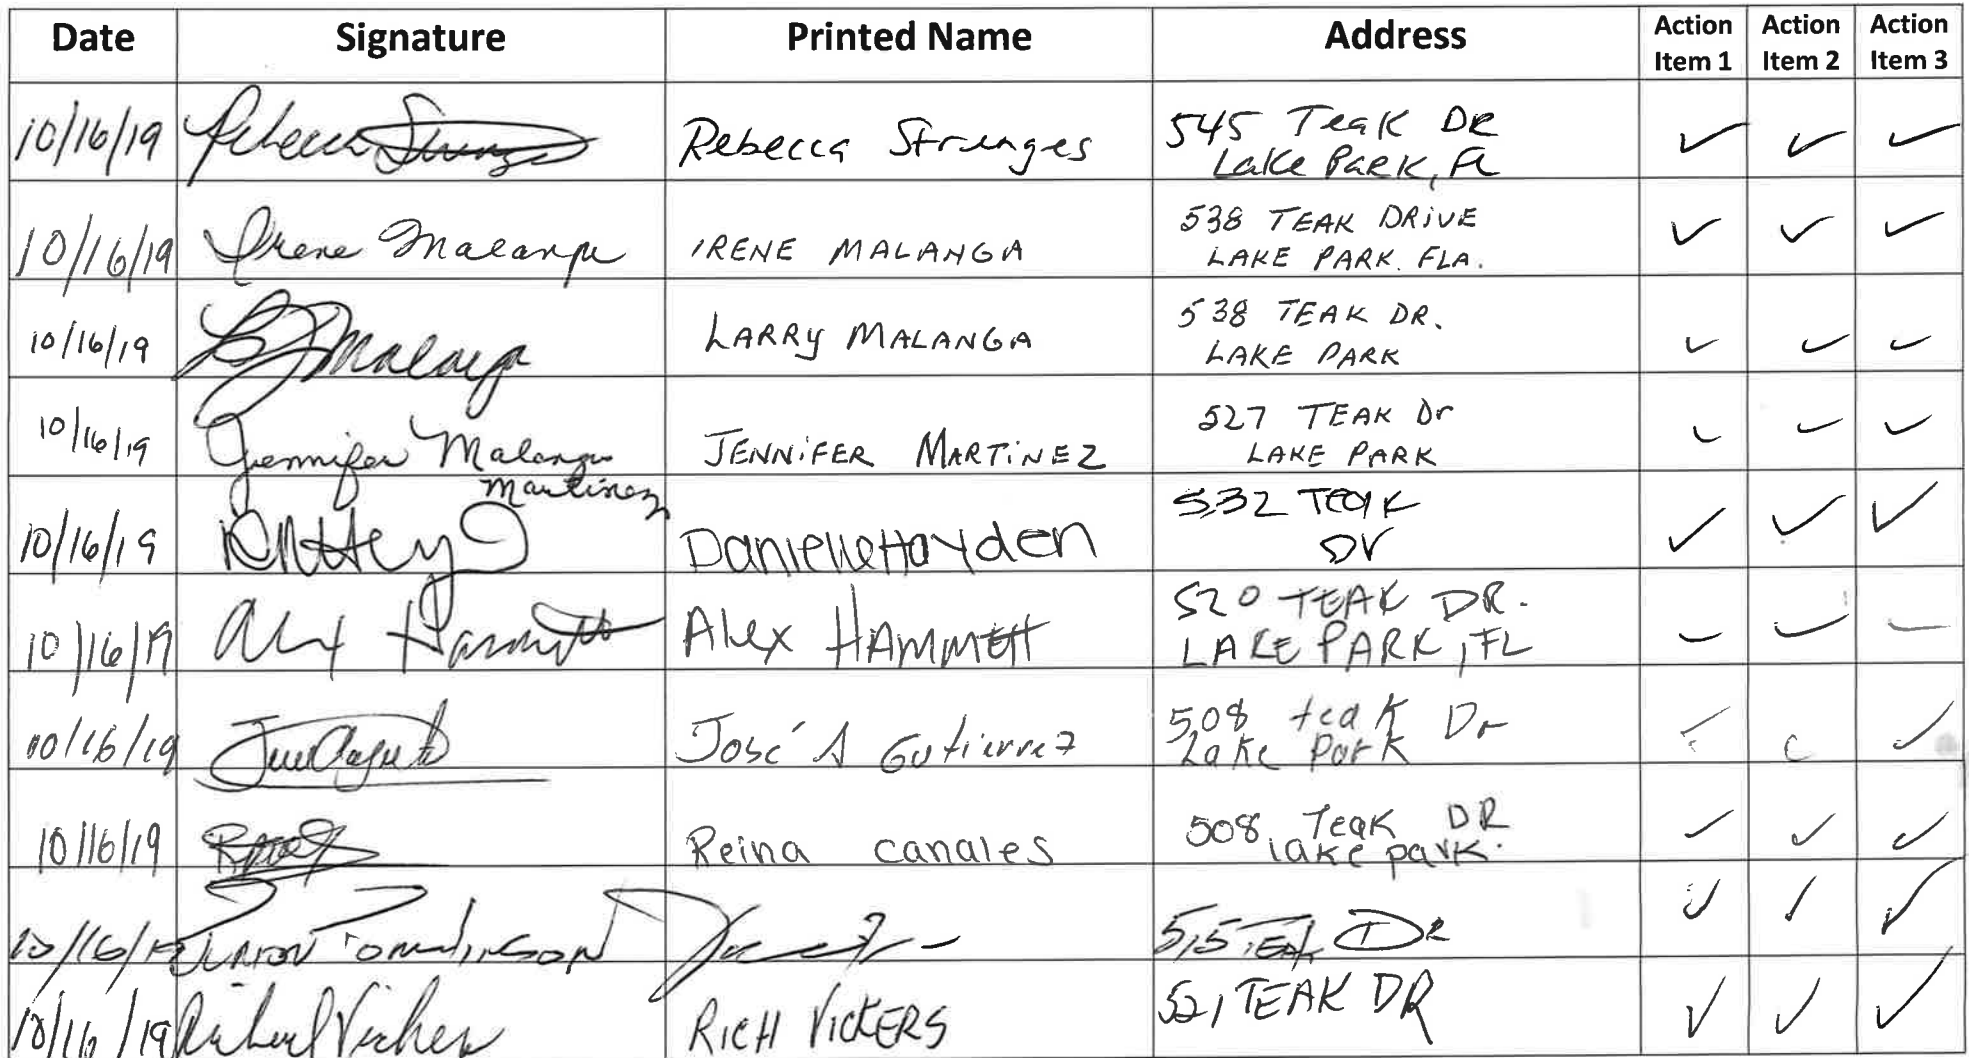 Date Signature Printed Name Address Action Item 1 Action Item 2 Action Item 3
10/16/19 Rebecca Strunges Rebecca Strunges 545 Teak DR
Lake Park, FL
10/16/19 Irene Malanga IRENE MALANGA 538 TEAK DRIVE
LAKE PARK. FLA.
10/16/19 Malanga LARRY MALANGA 538 TEAK DR.
LAKE PARK
10/16/19 Jennifer Malanga JENNIFER MARTINEZ 527 TEAK Dr
Martinez LAKE PARK
10/16/19 Danielle Hayden 532 Teak
Dr
10/16/19 Alex Hammett Alex HAMMETT 520 TEAK DR.
LAKE PARK, FL
10/16/19 José A Gutierrez 508 teak Dr
Lake Park
10/16/19 Reina canales 508 Teak DR
lake park.
10/16/19 JUNION TOMLINSON 515 TEAK DR
10/16/19 Richard Vickers RICH VICKERS 521 TEAK DR